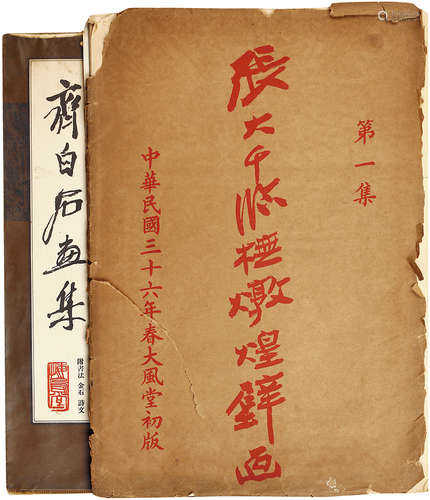 第一集
張大千臨橅燉煌壁画
中華民國三十六年春大風堂初版
齊白石画集
附書法 金石 詩文